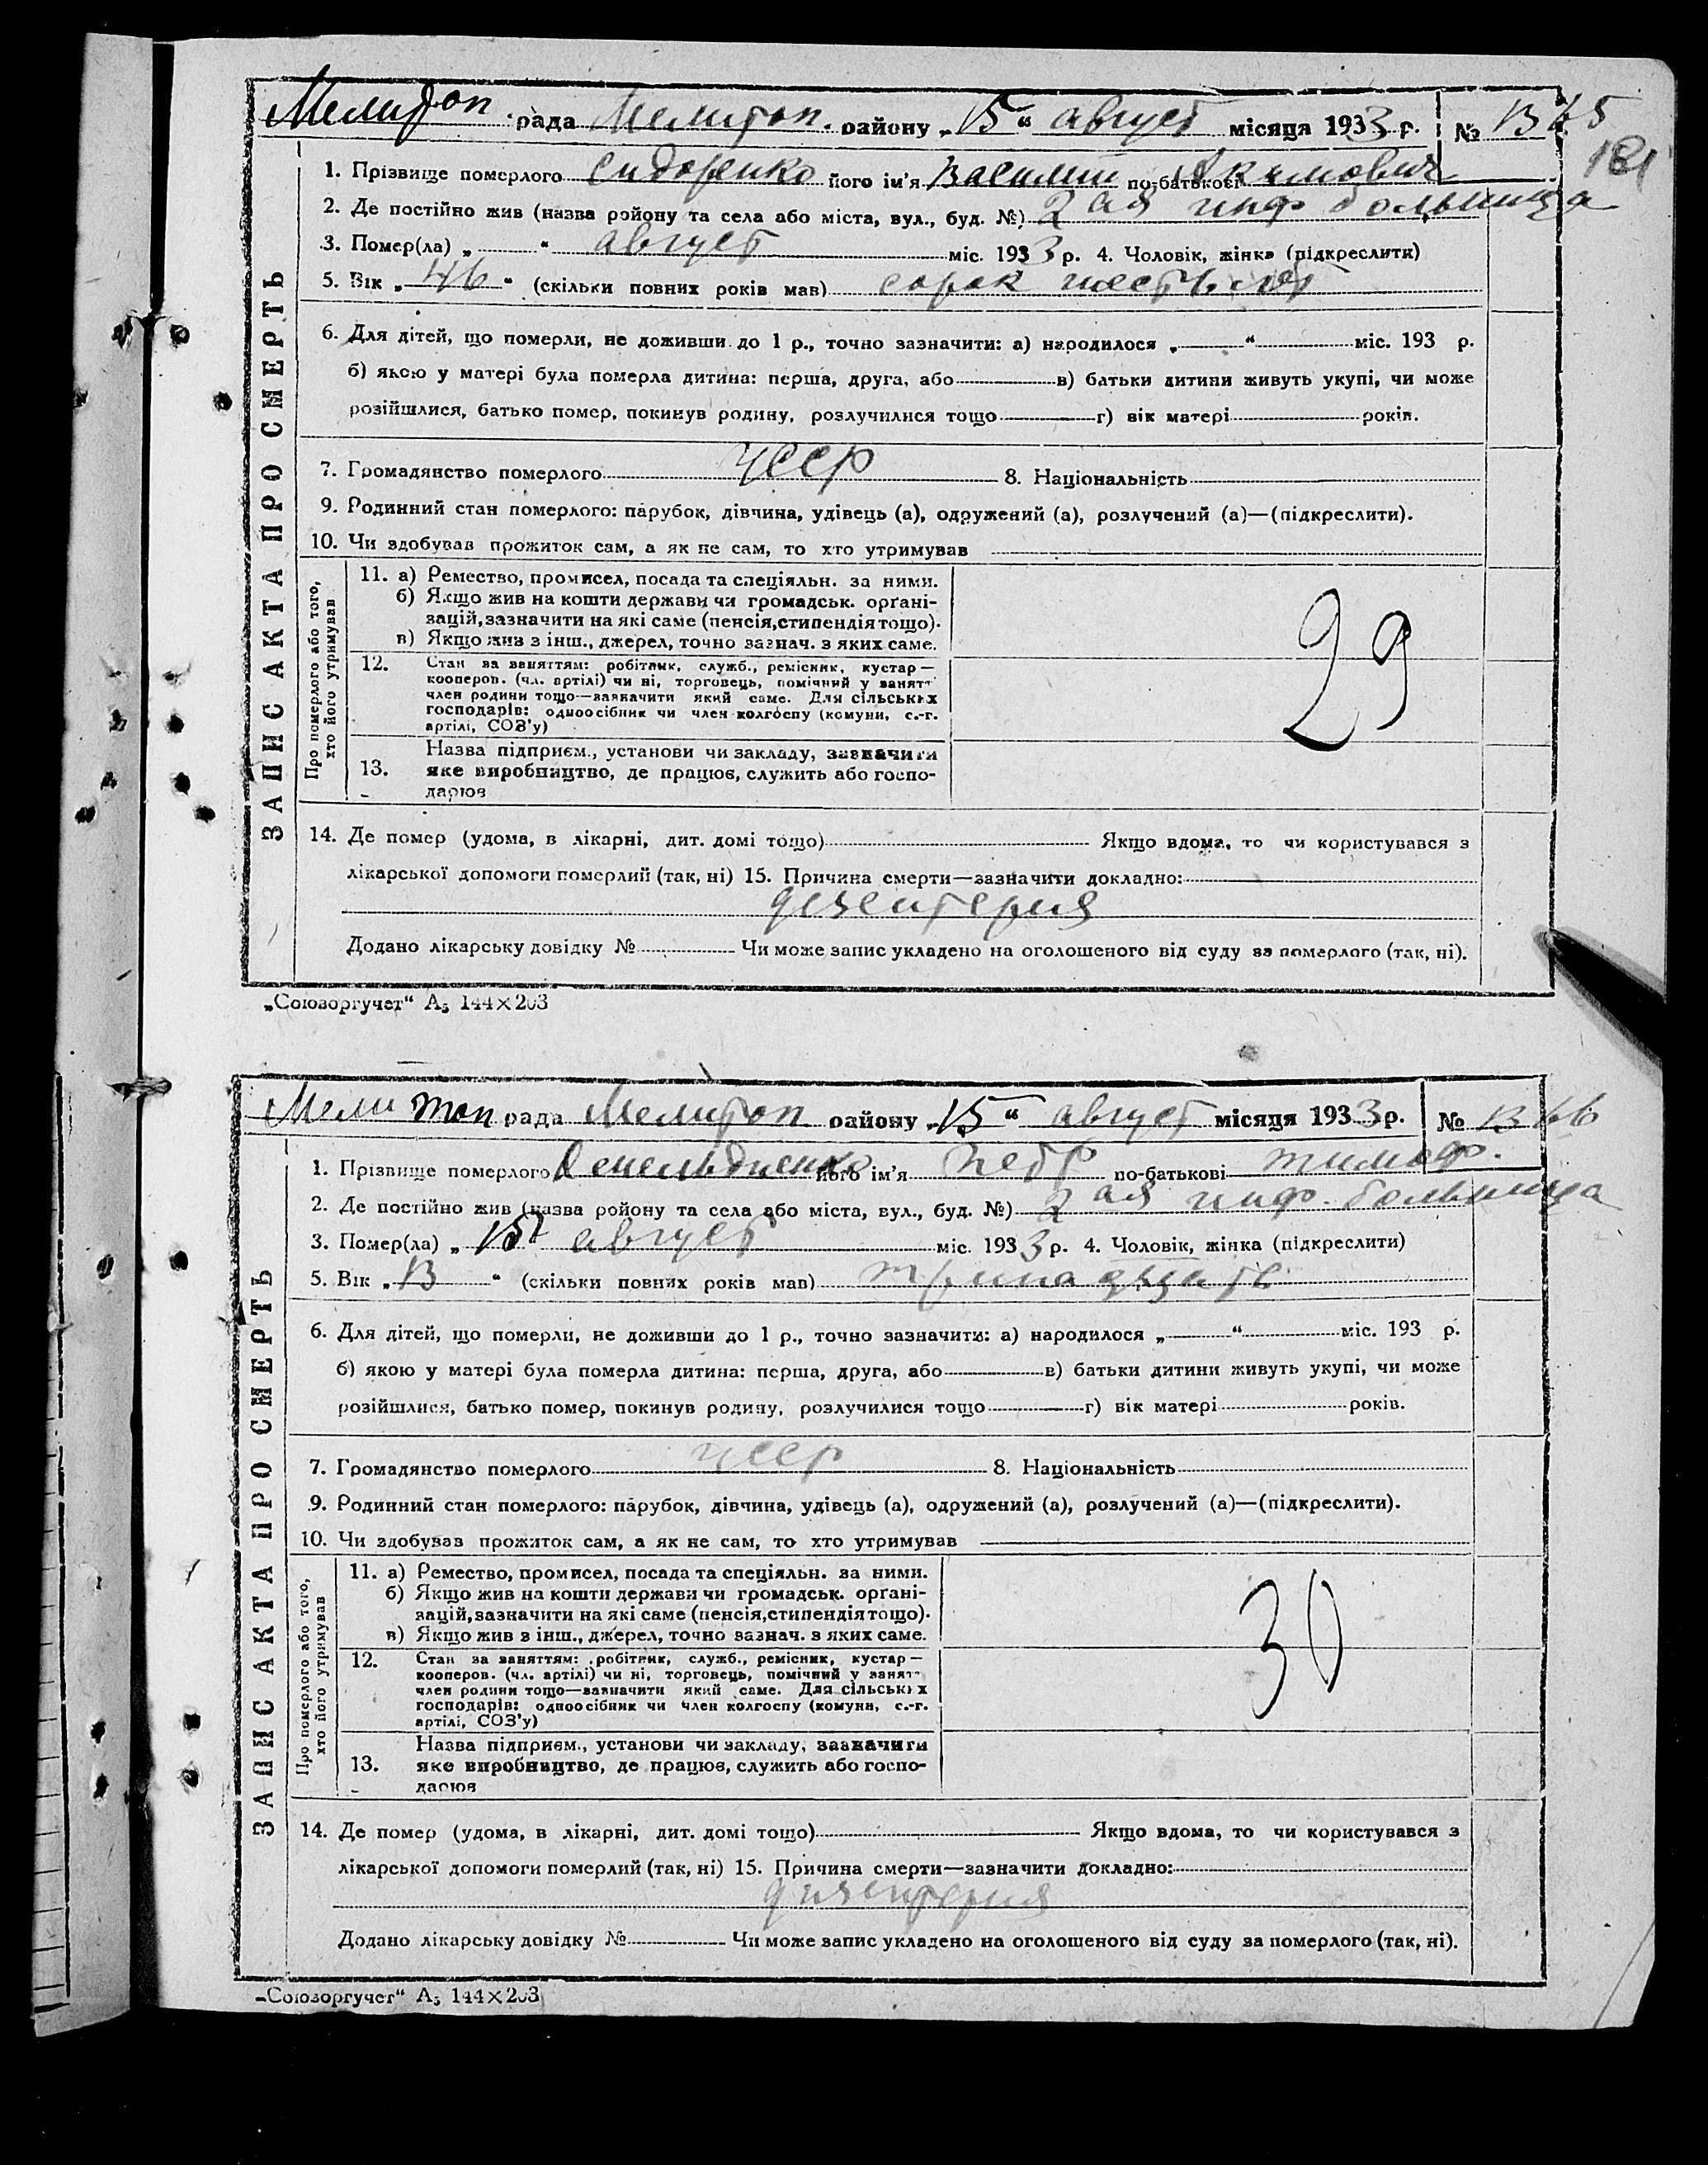 Мелитоп. рада Мелитоп. району „15“ август місяця 1933 р. № 1365
181
1. Прізвище померлого Сидоренко його ім’я Василий по-батькові Акимович
2. Де постійно жив (назва району та села або міста, вул., буд. №) 2ая инф больница
3. Помер(ла) „ “ август міс. 1933 р. 4. Чоловік, жінка (підкреслити)
5. Вік „46“ (скільки повних років мав) сорок шесть лет
6. Для дітей, що померли, не доживши до 1 р., точно зазначити: а) народилося „ “ міс. 193 р.
б) якою у матері була померла дитина: перша, друга, або в) батьки дитини живуть укупі, чи може
розійшлися, батько помер, покинув родину, розлучилися тощо г) вік матері років.
7. Громадянство померлого УССР 8. Національність
9. Родинний стан померлого: парубок, дівчина, удівець (а), одружений (а), розлучений (а)—(підкреслити).
10. Чи здобував прожиток сам, а як не сам, то хто утримував
ЗАПИС АКТА ПРО СМЕРТЬ
Про померлого або того,
хто його утримував
11. а) Ремество, промисел, посада та спеціяльн. за ними.
б) Якщо жив на кошти держави чи громадськ. орґані-
зацій, зазначити на які саме (пенсія, стипендія тощо).
в) Якщо жив з інш., джерел, точно зазнач. з яких саме.
29
12. Стан за заняттям: робітник, служб., ремісник, кустар—
кооперов. (чл. артілі) чи ні, торговець, помічний у занятт
член родини тощо—зазначити який саме. Для сільських
господарів: одноосібник чи член колгоспу (комуни, с.-г.
артілі, СОЗ’у)
13. Назва підприєм., установи чи закладу, зазначити
яке виробництво, де працює, служить або госпо-
дарює
14. Де помер (удома, в лікарні, дит. домі тощо) Якщо вдома, то чи користувався з
лікарської допомоги померлий (так, ні) 15. Причина смерти—зазначити докладно:
дизентерия
Додано лікарську довідку № Чи може запис укладено на оголошеного від суду за померлого (так, ні).
„Союзоргучет“ А₅ 144×203
Мелитоп рада Мелитоп району „15“ август місяця 1933 р. № 1366
1. Прізвище померлого його ім’я Петр по-батькові тимоф.
2. Де постійно жив (назва району та села або міста, вул., буд. №) 2ая инф. больница
3. Помер(ла) „15“ август міс. 1933 р. 4. Чоловік, жінка (підкреслити)
5. Вік „13“ (скільки повних років мав) тринадцать
6. Для дітей, що померли, не доживши до 1 р., точно зазначити: а) народилося „ “ міс. 193 р.
б) якою у матері була померла дитина: перша, друга, або в) батьки дитини живуть укупі, чи може
розійшлися, батько помер, покинув родину, розлучилися тощо г) вік матері років.
7. Громадянство померлого УССР 8. Національність
9. Родинний стан померлого: парубок, дівчина, удівець (а), одружений (а), розлучений (а)—(підкреслити).
10. Чи здобував прожиток сам, а як не сам, то хто утримував
ЗАПИС АКТА ПРО СМЕРТЬ
Про померлого або того,
хто його утримував
11. а) Ремество, промисел, посада та спеціяльн. за ними.
б) Якщо жив на кошти держави чи громадськ. орґані-
зацій, зазначити на які саме (пенсія, стипендія тощо).
в) Якщо жив з інш., джерел, точно зазнач. з яких саме.
30
12. Стан за заняттям: робітник, служб., ремісник, кустар—
кооперов. (чл. артілі) чи ні, торговець, помічний у занят
член родини тощо—зазначити який саме. Для сільських
господарів: одноосібник чи член колгоспу (комуни, с.-г.
артілі, СОЗ’у)
13. Назва підприєм., установи чи закладу, зазначити
яке виробництво, де працює, служить або госпо-
дарює
14. Де помер (удома, в лікарні, дит. домі тощо) Якщо вдома, то чи користувався з
лікарської допомоги померлий (так, ні) 15. Причина смерти—зазначити докладно:
дизентерия
Додано лікарську довідку № Чи може запис укладено на оголошеного від суду за померлого (так, ні).
„Союзоргучет“ А₅ 144×203